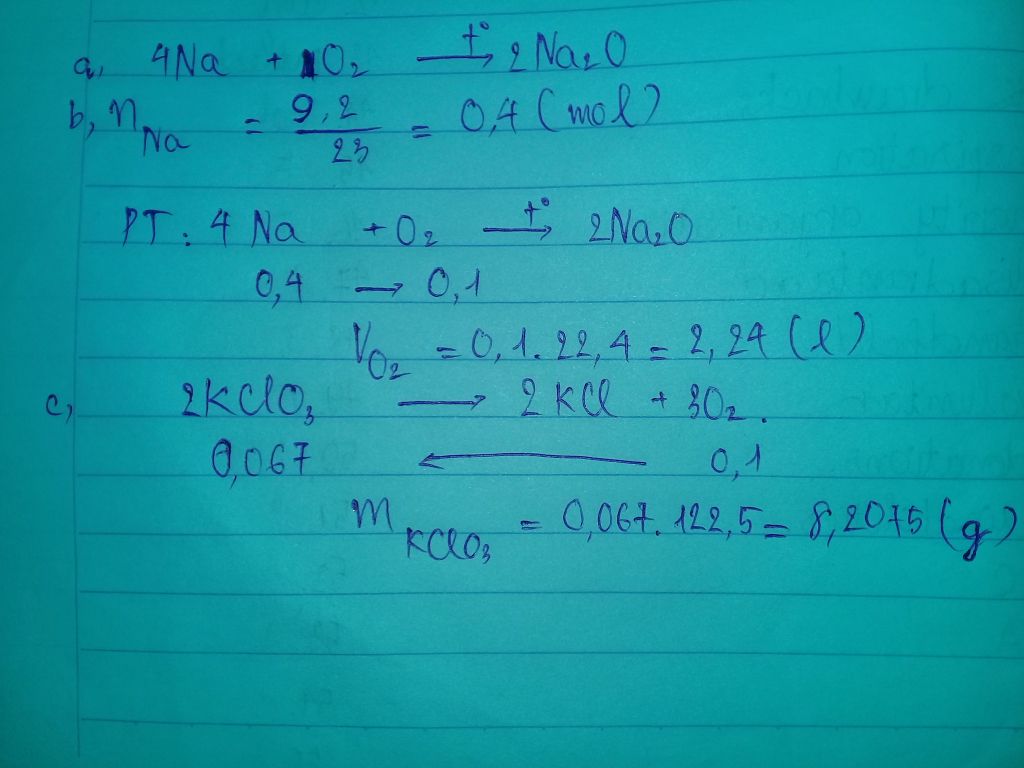 a, 4Na + 1O₂ —t°→ 2Na₂O
b, n_Na = 9,2/23 = 0,4 (mol)
PT: 4Na + O₂ —t°→ 2Na₂O
0,4 → 0,1
V_O₂ = 0,1.22,4 = 2,24 (l)
c, 2KClO₃ → 2KCl + 3O₂.
0,067 ← 0,1
m_KClO₃ = 0,067.122,5 = 8,2075 (g)